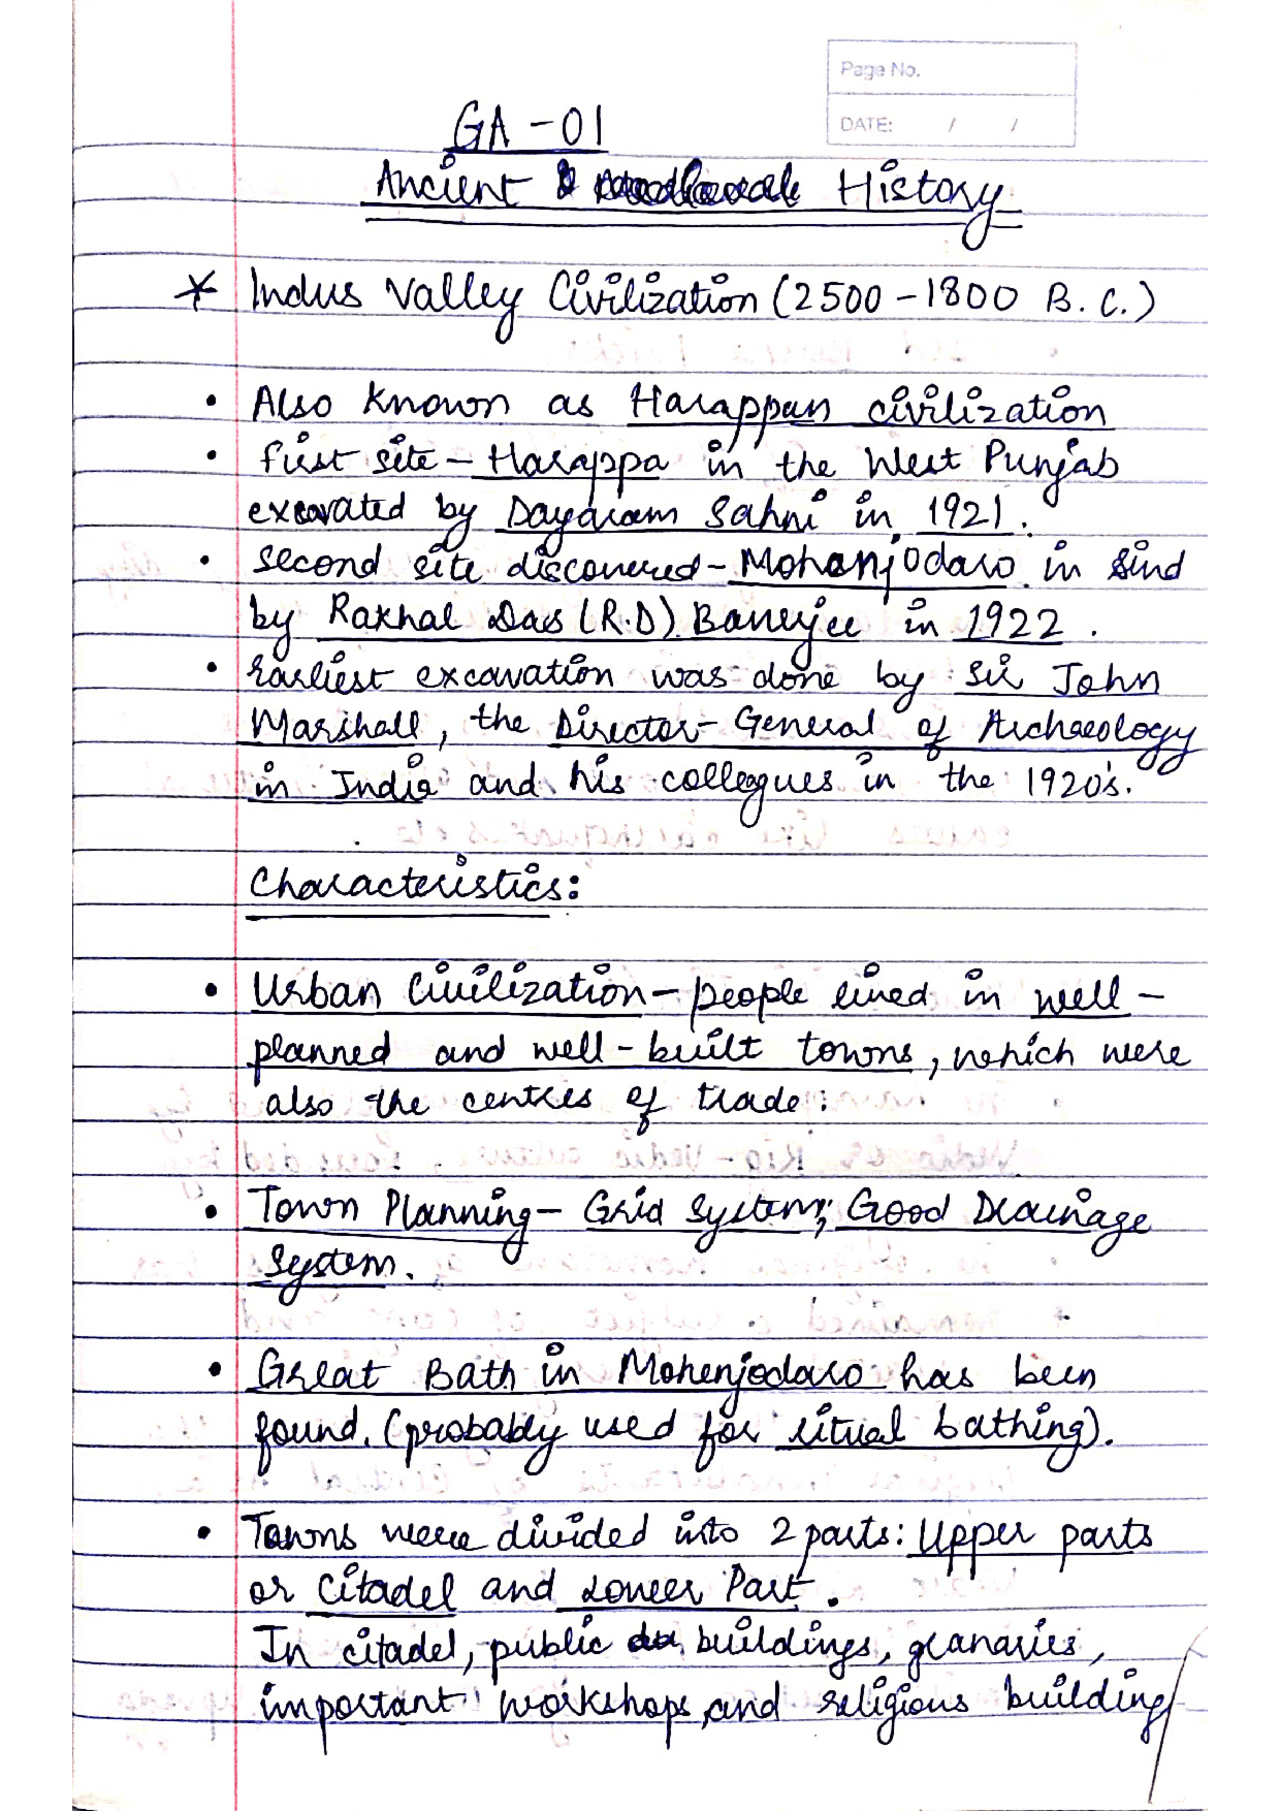 Page No.
DATE: / /
GA-01
Ancient & History
* Indus Valley Civilization (2500-1800 B.C.)
• Also Known as Harappan civilization
• first site - Harappa in the West Punjab
excavated by Dayaram Sahni in 1921.
• Second site discovered - Mohanjodaro in Sind
by Rakhal Das (R.D). Banerjee in 1922.
• Earliest excavation was done by Sir John
Marshall, the Director-General of Archaeology
in India and his colleagues in the 1920's.
Characteristics:
• Urban Civilization - people lived in well-
planned and well-built towns, which were
also the centres of trade.
• Town Planning - Grid System; Good Drainage
System.
• Great Bath in Mohenjodaro has been
found. (probably used for ritual bathing).
• Towns were divided into 2 parts: Upper parts
or Citadel and Lower Part.
In citadel, public buildings, granaries,
important workshops, and religious building